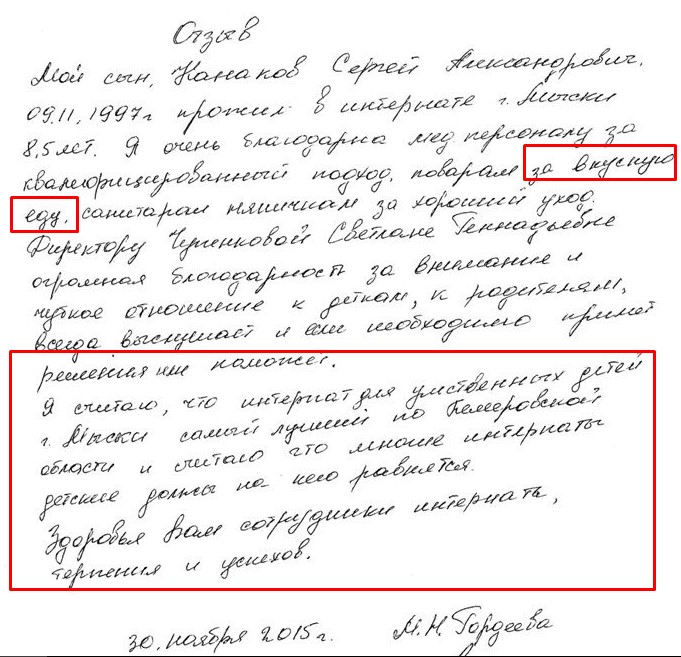 Отзыв
Мой сын, Канаков Сергей Александрович.
09.11.1997г прожил в интернате г. Мыски
8,5 лет. Я очень благодарна мед. персоналу за
квалифицированный подход, поварам за вкусную
еду, санитарам няничкам за хороший уход.
Директору Чушенковой Светлане Геннадьевне
огромная благодарность за внимание и
чуткое отношение к деткам, к родителям,
всегда выслушает и если необходимо примет
решения или поможет.
Я считаю, что интернат для умственных детей
г. Мыски самый лучший по Кемеровской
области и считаю что многие интернаты
детские должны на него равнятся.
Здоровья Вам сотрудники интерната,
терпения и успехов.
30. ноября 2015г. М.Н. Гордеева